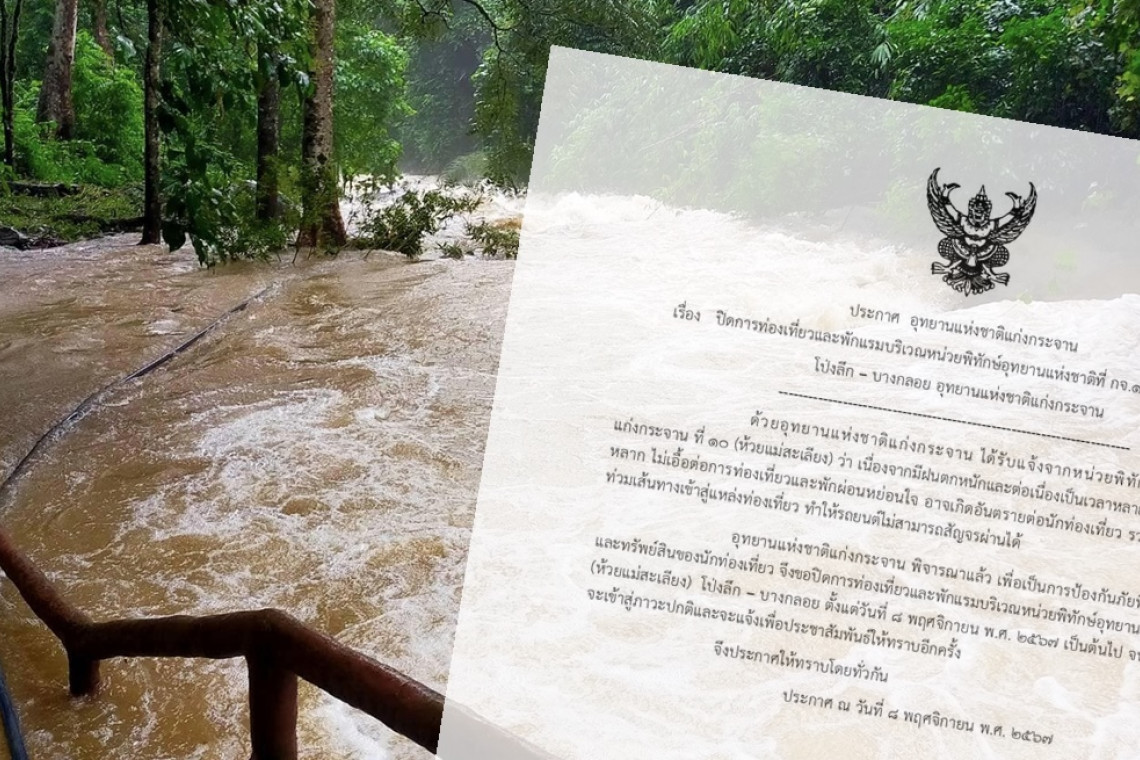 ประกาศ อุทยานแห่งชาติแก่งกระจาน
เรื่อง ปิดการท่องเที่ยวและพักแรมบริเวณหน่วยพิทักษ์อุทยานแห่งชาติที่ กจ.๑
โป่งลึก – บางกลอย อุทยานแห่งชาติแก่งกระจาน
ด้วยอุทยานแห่งชาติแก่งกระจาน ได้รับแจ้งจากหน่วยพิทั
แก่งกระจาน ที่ ๑๐ (ห้วยแม่สะเลียง) ว่า เนื่องจากมีฝนตกหนักและต่อเนื่องเป็นเวลาหลาย
หลาก ไม่เอื้อต่อการท่องเที่ยวและพักผ่อนหย่อนใจ อาจเกิดอันตรายต่อนักท่องเที่ยว
ท่วมเส้นทางเข้าสู่แหล่งท่องเที่ยว ทำให้รถยนต์ไม่สามารถสัญจรผ่านได้
อุทยานแห่งชาติแก่งกระจาน พิจารณาแล้ว เพื่อเป็นการป้องกันภัย
และทรัพย์สินของนักท่องเที่ยว จึงขอปิดการท่องเที่ยวและพักแรมบริเวณหน่วยพิทักษ์อุทยาน
(ห้วยแม่สะเลียง) โป่งลึก – บางกลอย ตั้งแต่วันที่ ๘ พฤศจิกายน พ.ศ. ๒๕๖๗ เป็นต้นไป
จะเข้าสู่ภาวะปกติและจะแจ้งเพื่อประชาสัมพันธ์ให้ทราบอีกครั้ง
จึงประกาศให้ทราบโดยทั่วกัน
ประกาศ ณ วันที่ ๘ พฤศจิกายน พ.ศ. ๒๕๖๗